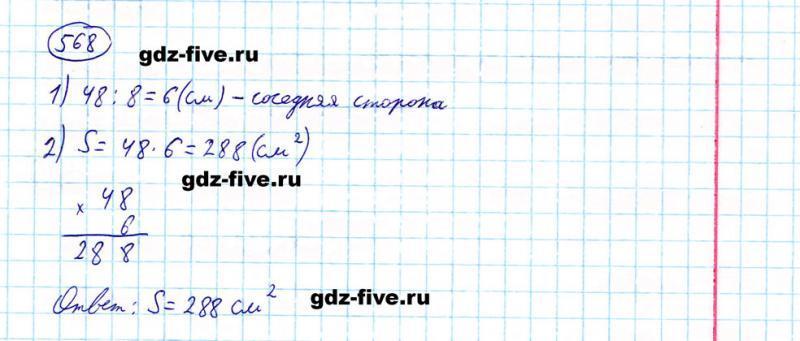 568
gdz-five.ru
1) 48 : 8 = 6 (см) – соседняя сторона
2) S = 48 · 6 = 288 (см²)
gdz-five.ru
× 48
6
288
Ответ: S = 288 см²
gdz-five.ru